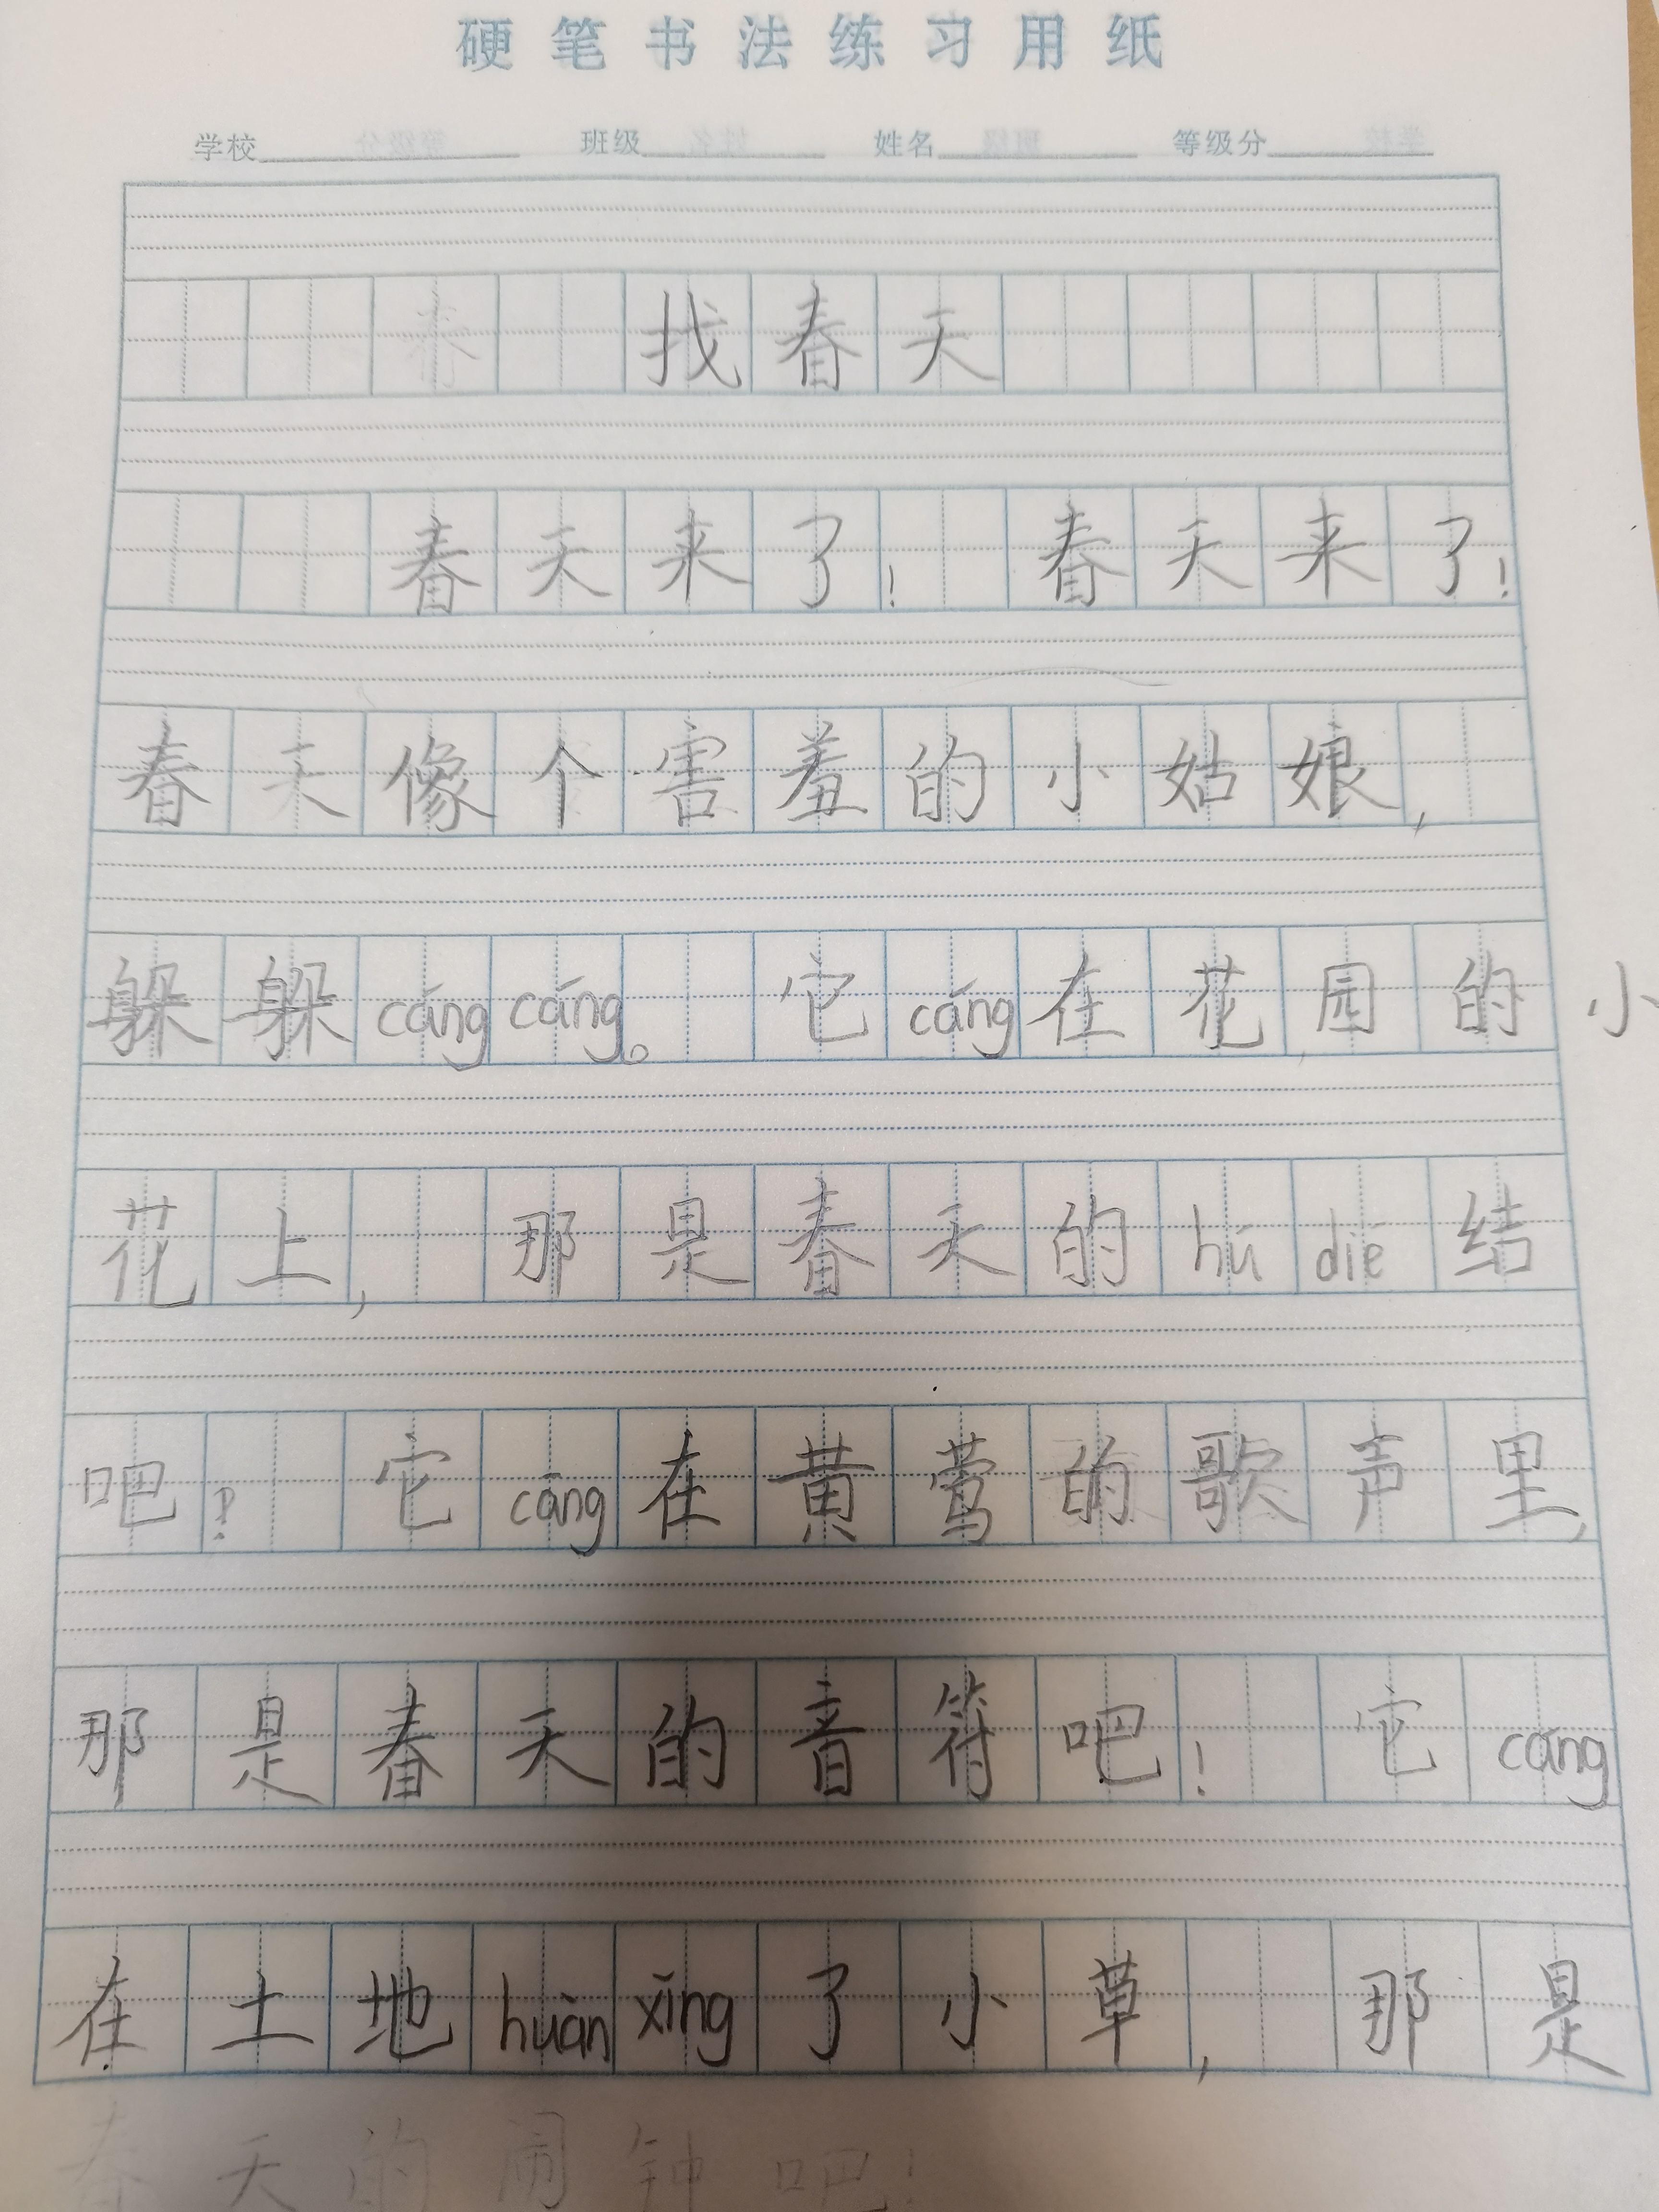 硬笔书法练习用纸
学校 班级 姓名 等级分
找春天
春天来了! 春天来了!
春天像个害羞的小姑娘,
躲躲cángcáng。它cáng在花园的小
花上, 那是春天的hú dié结
吧? 它cáng在黄莺的歌声里,
那是春天的音符吧! 它cáng
在土地huàn xǐng了小草, 那是
春天的闹钟吧!